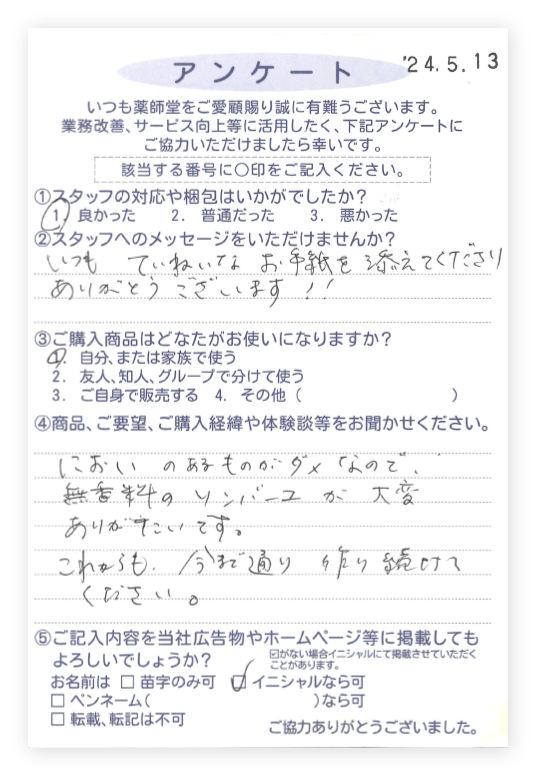 アンケート
'24.5.13
いつも薬師堂をご愛顧賜り誠に有難うございます。
業務改善、サービス向上等に活用したく、下記アンケートに
ご協力いただけましたら幸いです。
該当する番号に〇印をご記入ください。
①スタッフの対応や梱包はいかがでしたか？
1. 良かった 2. 普通だった 3. 悪かった
②スタッフへのメッセージをいただけませんか？
いつも ていねいな お手紙を 添えてくださり
ありがとう ございます!!
③ご購入商品はどなたがお使いになりますか？
1. 自分、または家族で使う
2. 友人、知人、グループで分けて使う
3. ご自身で販売する 4. その他（ ）
④商品、ご要望、ご購入経緯や体験談等をお聞かせください。
においのあるものがダメなので、
無香料のソンバーユが 大変
ありがたいです。
これからも、今まで通り 作り続けて
ください。
⑤ご記入内容を当社広告物やホームページ等に掲載しても
よろしいでしょうか？
☑がない場合イニシャルにて掲載させていただく
ことがあります。
お名前は □ 苗字のみ可 ☑ イニシャルなら可
□ ペンネーム( )なら可
□ 転載、転記は不可
ご協力ありがとうございました。